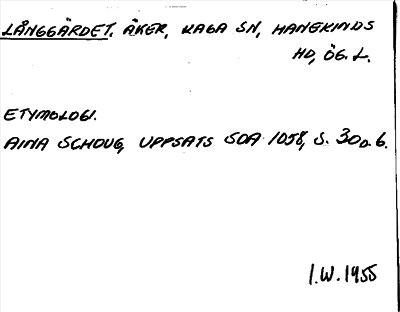 LÅNGGÄRDET. ÅKER, KAGA SN, HANEKINDS
HD, ÖG. L.
ETYMOLOGI.
AINA SCHOUG, UPPSATS SOA 1058, S. 30 o. 6.
I.W. 1955